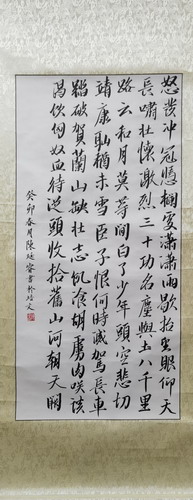 怒發冲冠憑欄處瀟瀟雨歇抬望眼仰天
長嘯壯懷激烈三十功名塵與土八千里
路云和月莫等閒白了少年頭空悲切
靖康恥猶未雪臣子恨何時滅駕長車
踏破賀蘭山缺壯志飢餐胡虜肉笑談
渴飲匈奴血待從頭收拾舊山河朝天闕
癸卯春月陳延睿書於培文